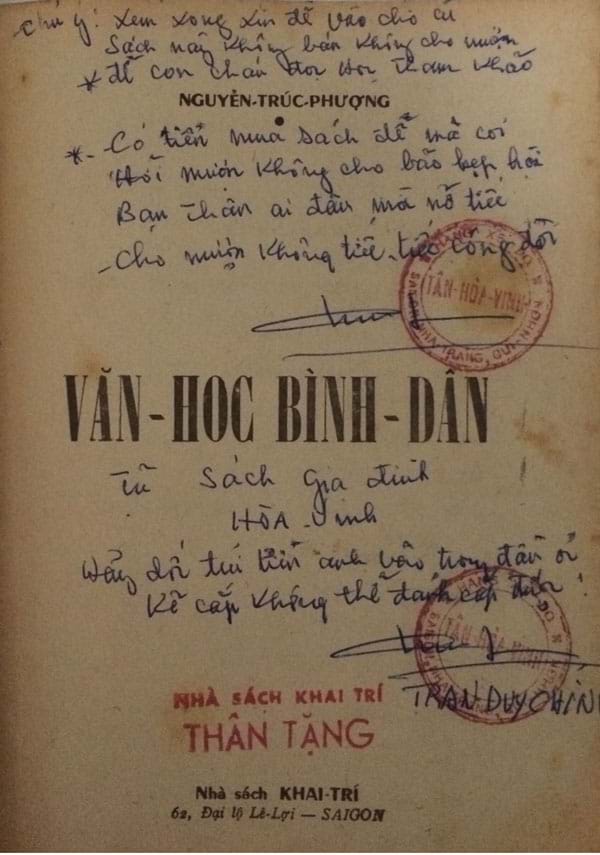 - chú ý: Xem xong xin để vào chỗ cũ
Sách này không bán không cho mượn
* để con cháu đời đời tham khảo
NGUYỄN-TRÚC-PHƯỢNG
* - Có tiền mua sách để mà coi
Hỏi mượn không cho bảo hẹp hòi
Bạn thân ai đâu mà nỡ tiếc
- Cho mượn không tiếc, tiếc công đòi
TÂN-HÒA-VINH
SAIGON, NHA-TRANG, QUI-NHƠN
VĂN-HỌC BÌNH-DÂN
Tủ Sách Gia đình
HÒA-Vinh
Hãy dốc túi tiền anh vào trong đầu óc
Kẻ cắp không thể đánh cắp được!
TÂN-HÒA-VINH
TRAN DUY CHÍNH
NHÀ SÁCH KHAI TRÍ
THÂN TẶNG
Nhà sách KHAI-TRÍ
62, Đại lộ Lê-Lợi — SAIGON